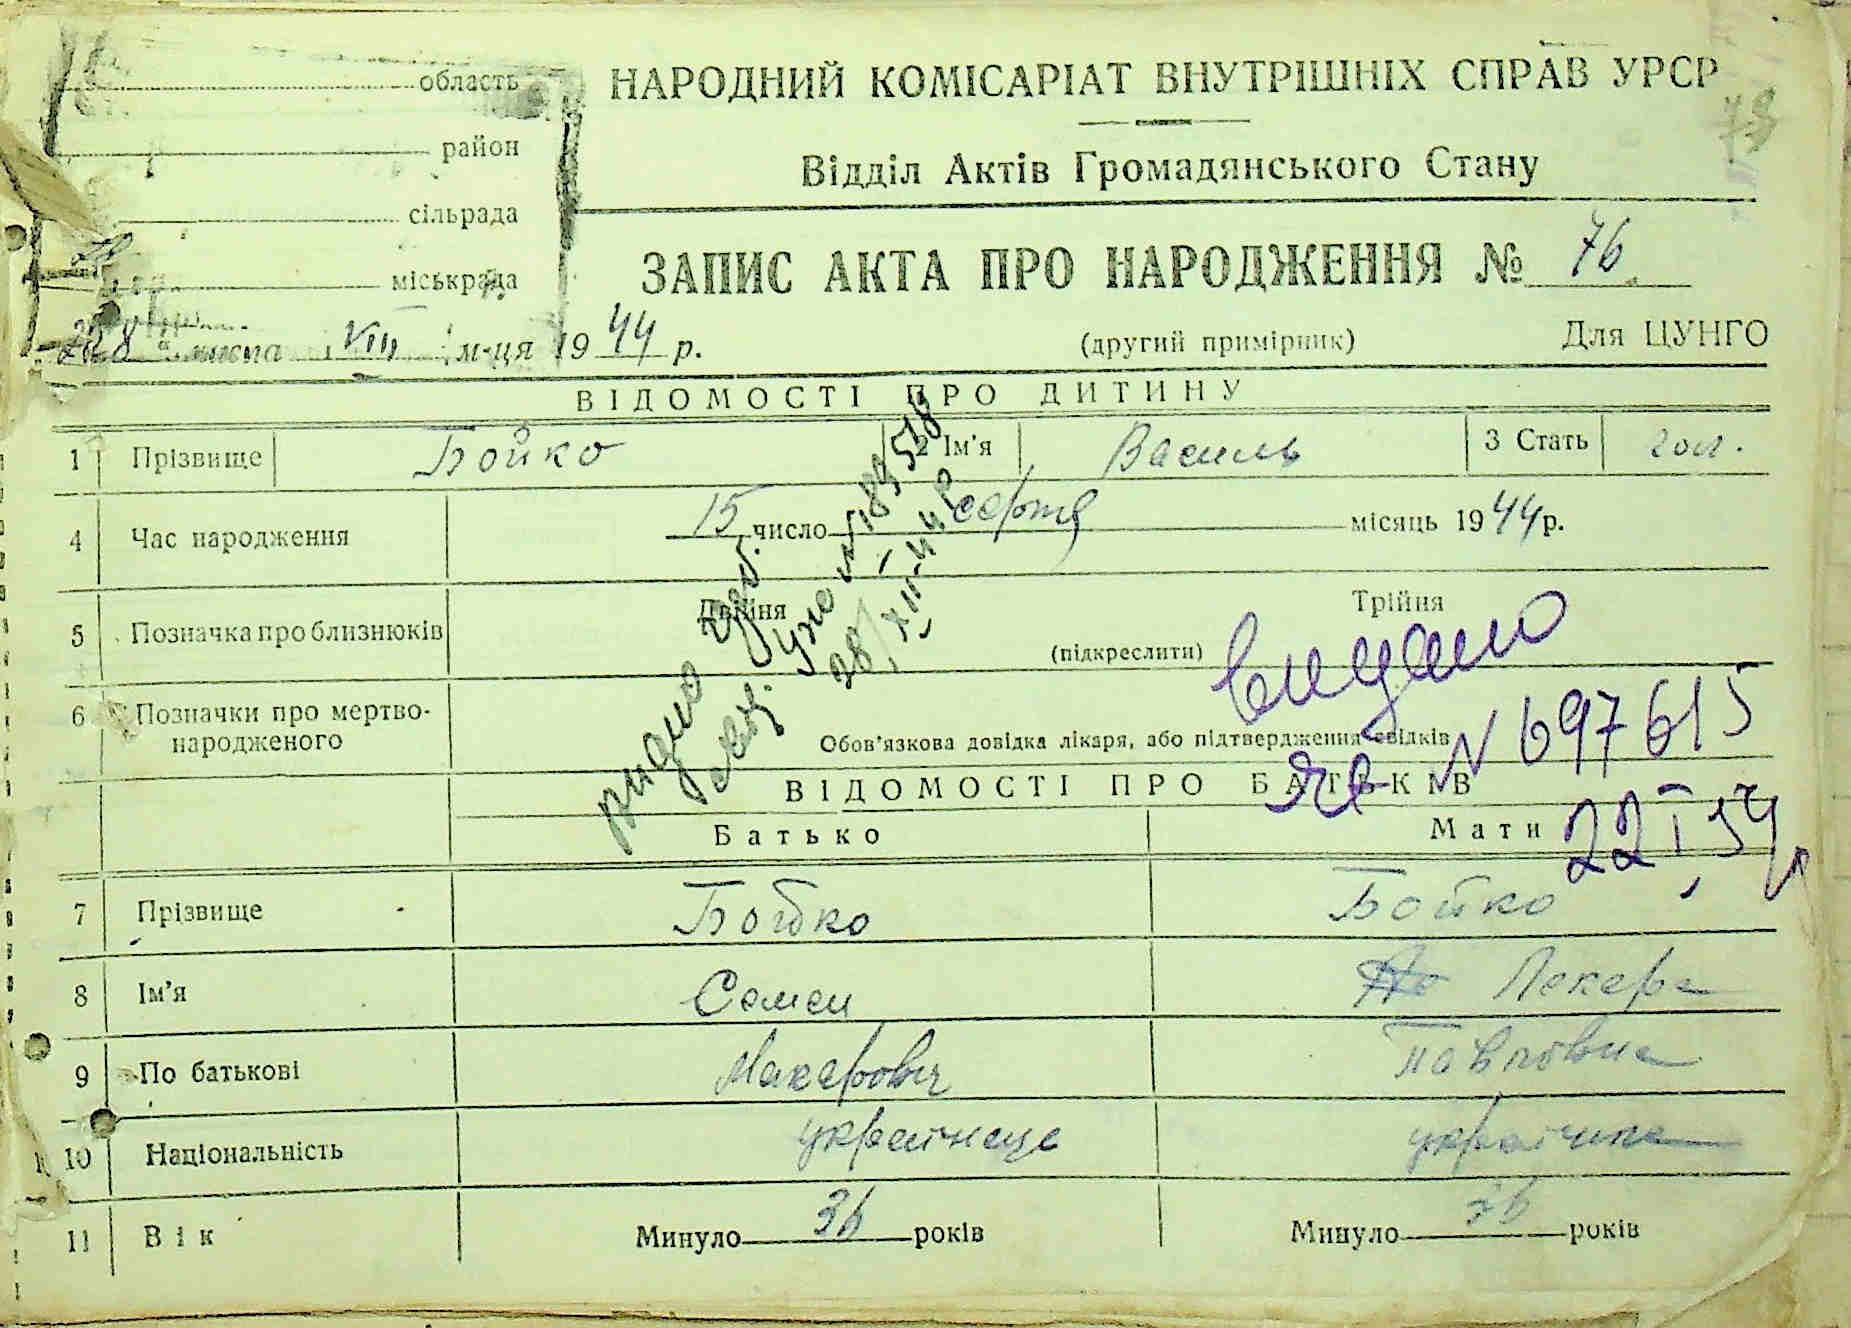 область
район
сільрада
міськрада
НАРОДНИЙ КОМІСАРІАТ ВНУТРІШНІХ СПРАВ УРСР
Відділ Актів Громадянського Стану
ЗАПИС АКТА ПРО НАРОДЖЕННЯ № 76
числа VIII м-ця 1944 р.
(другий примірник)
Для ЦУНГО
ВІДОМОСТІ ПРО ДИТИНУ
1 Прізвище Бойко 2 Ім'я Василь 3 Стать чол.
4 Час народження 15 число серпня місяць 1944 р.
5 Позначка про близнюків Двійня (підкреслити) Трійня
6 Позначки про мертвонародженого
Обов'язкова довідка лікаря, або підтвердження свідків
видано
N 697615
22 I 54
ВІДОМОСТІ ПРО БАТЬКІВ
Батько Мати
7 Прізвище Бойко Бойко
8 Ім'я Семен Лекера
9 По батькові Макарович Павловна
10 Національність українець українка
11 Вік Минуло 36 років Минуло 36 років